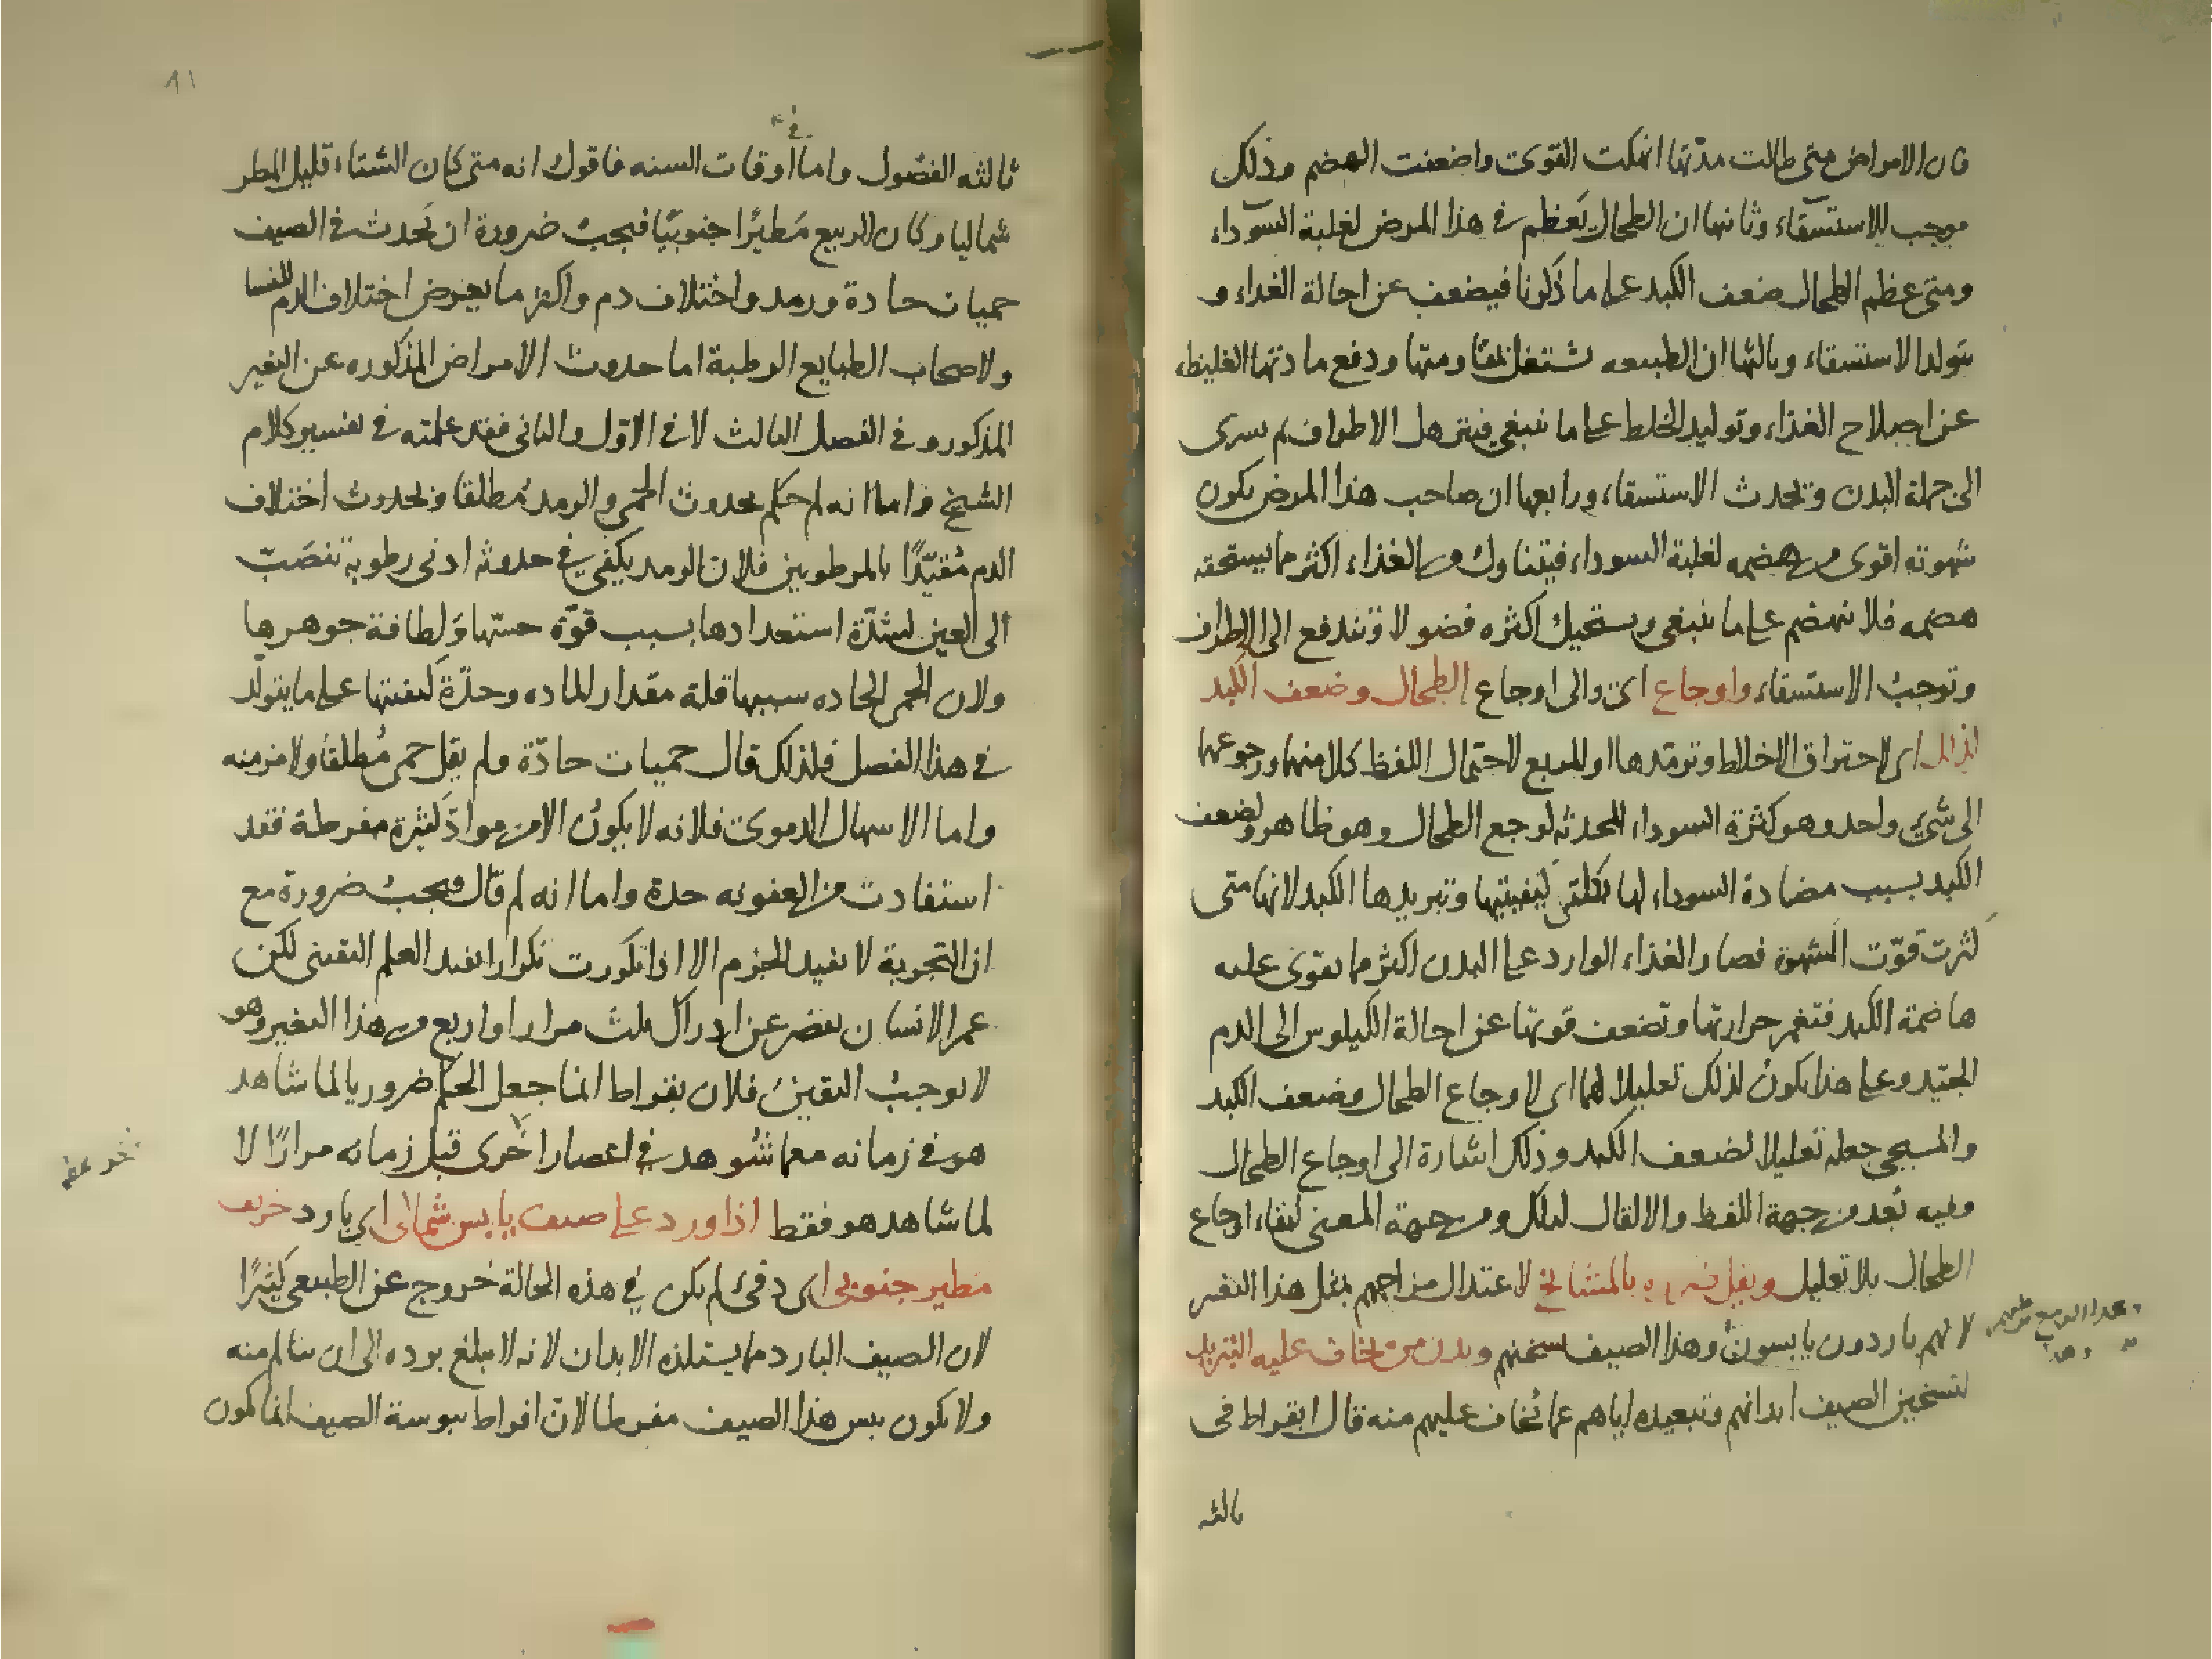 فان الامراض متى طالت مدتها انهكت القوى واضعفت الهضم وذلك
موجب للاستسقاء وثانيها ان الطحال يعظم في هذا المرض لغلبة السوداء
ومتى عظم الطحال ضعف الكبد على ما ذكرنا فيضعف عن احالة الغداء و
يتولد الاستسقاء وثالثها ان الطبيعه تشتغل بمقاومتها ودفع مادتها الغليظه
عن اصلاح الغذاء وتوليد الخلط على ما ينبغي فيترهل الاطراف ثم يسرى
الى جملة البدن ويحدث الاستسقاء ورابعها ان صاحب هذا المرض يكون
شهوته اقوى من هضمه لغلبة السوداء فيتناول من الغذاء اكثر مما يستحقه
هضمه فلا ينهضم على ما ينبغي ويستحيل اكثره فضولا وتندفع الى الاطراف
وتوجب الاستسقاء واوجاع اى والى اوجاع الطحال وضعف الكبد
لذلك اى لاحتراق الاخلاط وترمدها او للربع لاحتمال اللفظ كلا منهما ورجوعهما
الى شيء واحد وهو كثرة السوداء المحدثه لوجع الطحال وهو ظاهر ولضعف
الكبد بسبب مضادة السوداء لها بكلتى كيفيتيها وتبريدها الكبد لانها متى
كثرت قوّت الشهوة فصار الغذاء الوارد على البدن اكثر مما يقوى عليه
هاضمة الكبد فتغمر حرارتها وتضعف قوتها عن احالة الكيلوس الى الدم
الجيد وعلى هذا يكون لذلك تعليلا لهما اى لاوجاع الطحال وضعف الكبد
والمسيحي جعله تعليلا لضعف الكبد وذلك اشارة الى اوجاع الطحال
وفيه بُعد من جهة اللفظ والا لقال لتلك ومن جهة المعنى لبقاء اوجاع
الطحال بلا تعليل ويقل ضرره بالمشايخ لاعتدال مزاجهم بمثل هذا التغير
لانهم باردون يابسون وهذا الصيف يسخنهم وبدن من يخاف عليه التبريد
لتسخين الصيف ابدانهم وتبعيده اياهم عما يُخاف عليهم منه قال ابقراط في
ثالثه
ثالثه الفصول واما في اوقات السنه فاقول انه متى كان الشتاء قليل المطر
شماليا وكان الربيع مَطيرًا جنوبيًا فيجبُ ضرورة ان تحدث في الصيف
حميات حادة ورمد واختلاف دم واكثر ما يعرض اختلاف الدم للنسا
ولاصحاب الطبايع الرطبة اما حدوث الامراض المذكوره عن التغير
المذكور و في الفصل الثالث لا في الاوّل والثاني فقد علمته في تفسير كلام
الشيخ واما انه لم حكم بحدوث الحمى والرمد مطلقا وبحدوث اختلاف
الدم مُقيّدًا بالمرطوبين فلان الرمد يكفي في حدوثه ادنى رطوبة تنصَبّ
الى العين لشدّة استعدادها بسبب قوّة حسّها ولطافة جوهرها
ولان الحمى الحاده سببها قلة مقدار الماده وحدّة كيفيتها على ما يتولّد
في هذا الفصل فلذلك قال حميات حادّة ولم يقل حمى مُطلقا ولا مزمنه
واما الاسهال الدموى فلانه لا يكونُ الا من موادّ كثيرة مفرطة فقد
استفادت من العفونه حدة واما انه لم قال فيجبُ ضرورة مع
ان التجربة لا تفيد الجزم الا اذا تكررت تكرارا يفيد العلم اليقيني لكن
عمر الانسان يقصر عن ادراك ثلث مرار او اربع من هذا التغير وهو
لا يوجبُ اليقين فلان بقراط انما جعل الحكم ضروريا لما شاهد
هو في زمانه معما شُوهد في اعصار اخرى قبل زمانه مرارًا لا
لما شاهد هو فقط اذا ورد على صيف يابس شمالى اى بارد خريف
مطير جنوبى اى دفئ لم يكن في هذه الحالة خروج عن الطبيعى كثيرًا
لان الصيف البارد مما يستلذه الابدان لانه لا يبلغ برده الى ان يتالم منه
ولا يكون يبس هذا الصيف مفرطا لانّ افراط يبوسة الصيف انما يكون